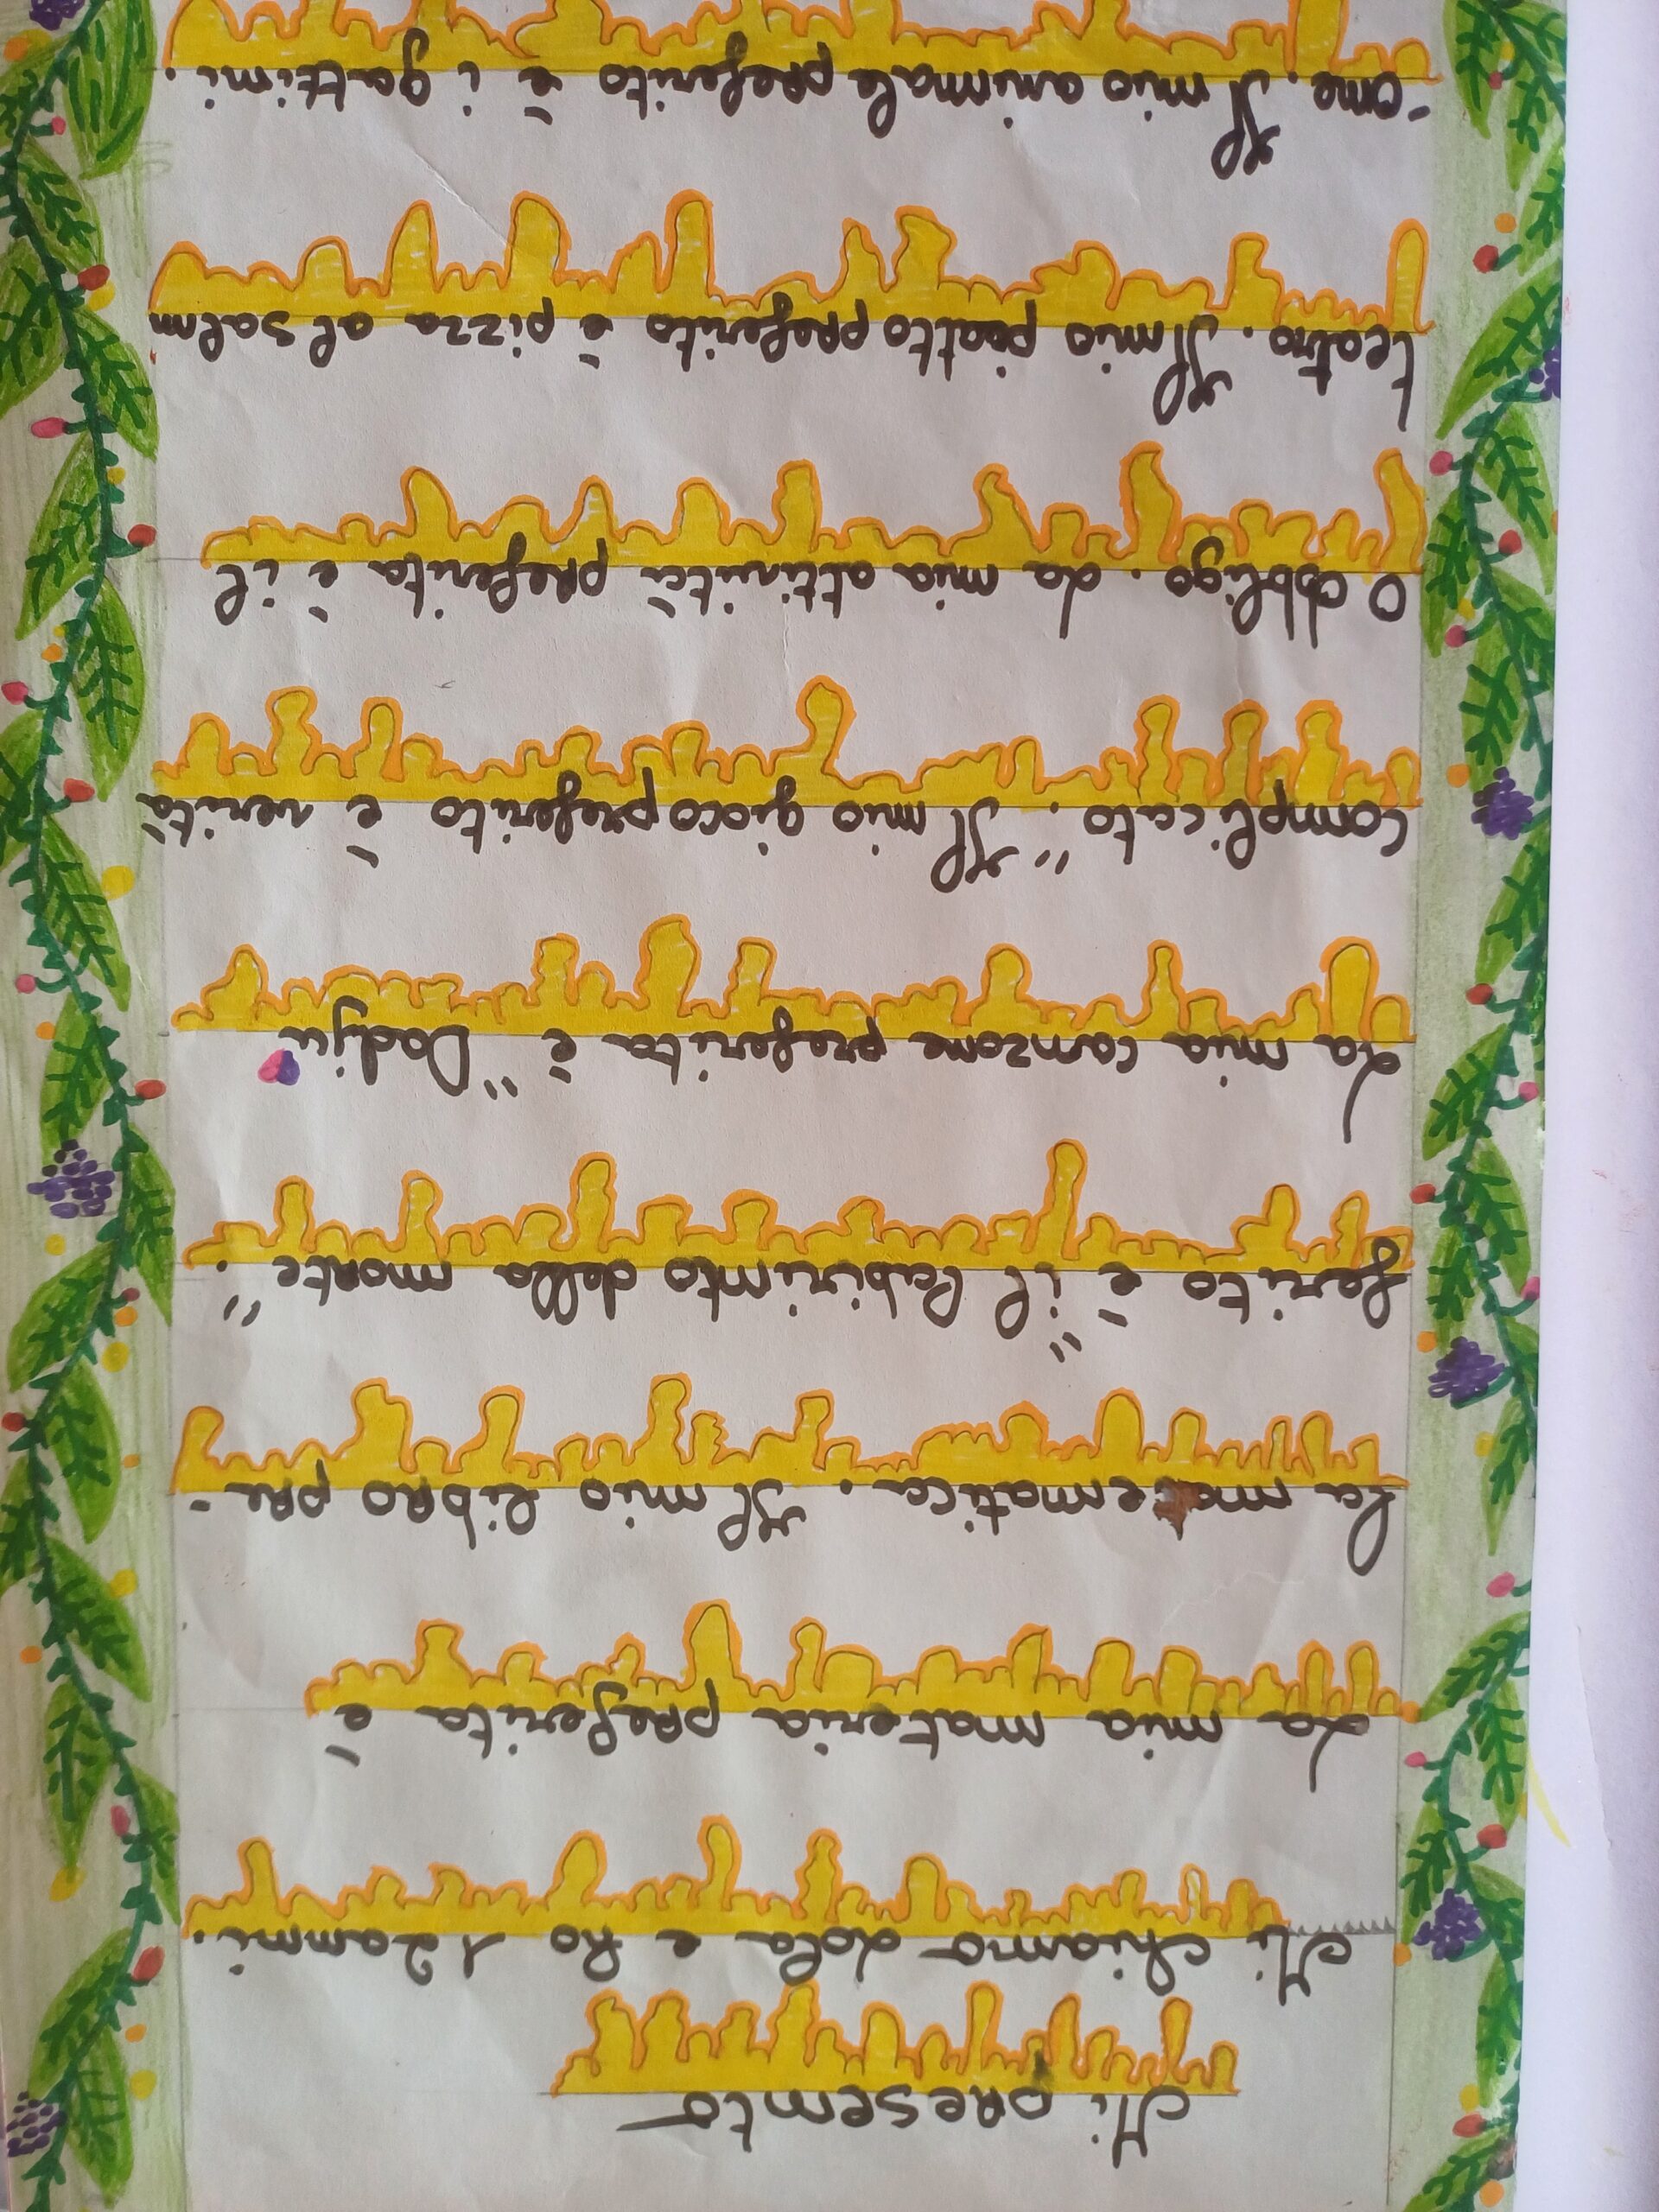 Mi presento
Mi chiamo Lola e ho 12 anni.
La mia materia preferita è
la matematica. Il mio libro pre-
ferito è "il labirinto della morte".
La mia canzone preferita è "Dadju
complicato". Il mio gioco preferito è verità
o obbligo. La mia attività preferita è il
teatro. Il mio piatto preferito è pizza al salm
-one. Il mio animale preferito è i gattini.